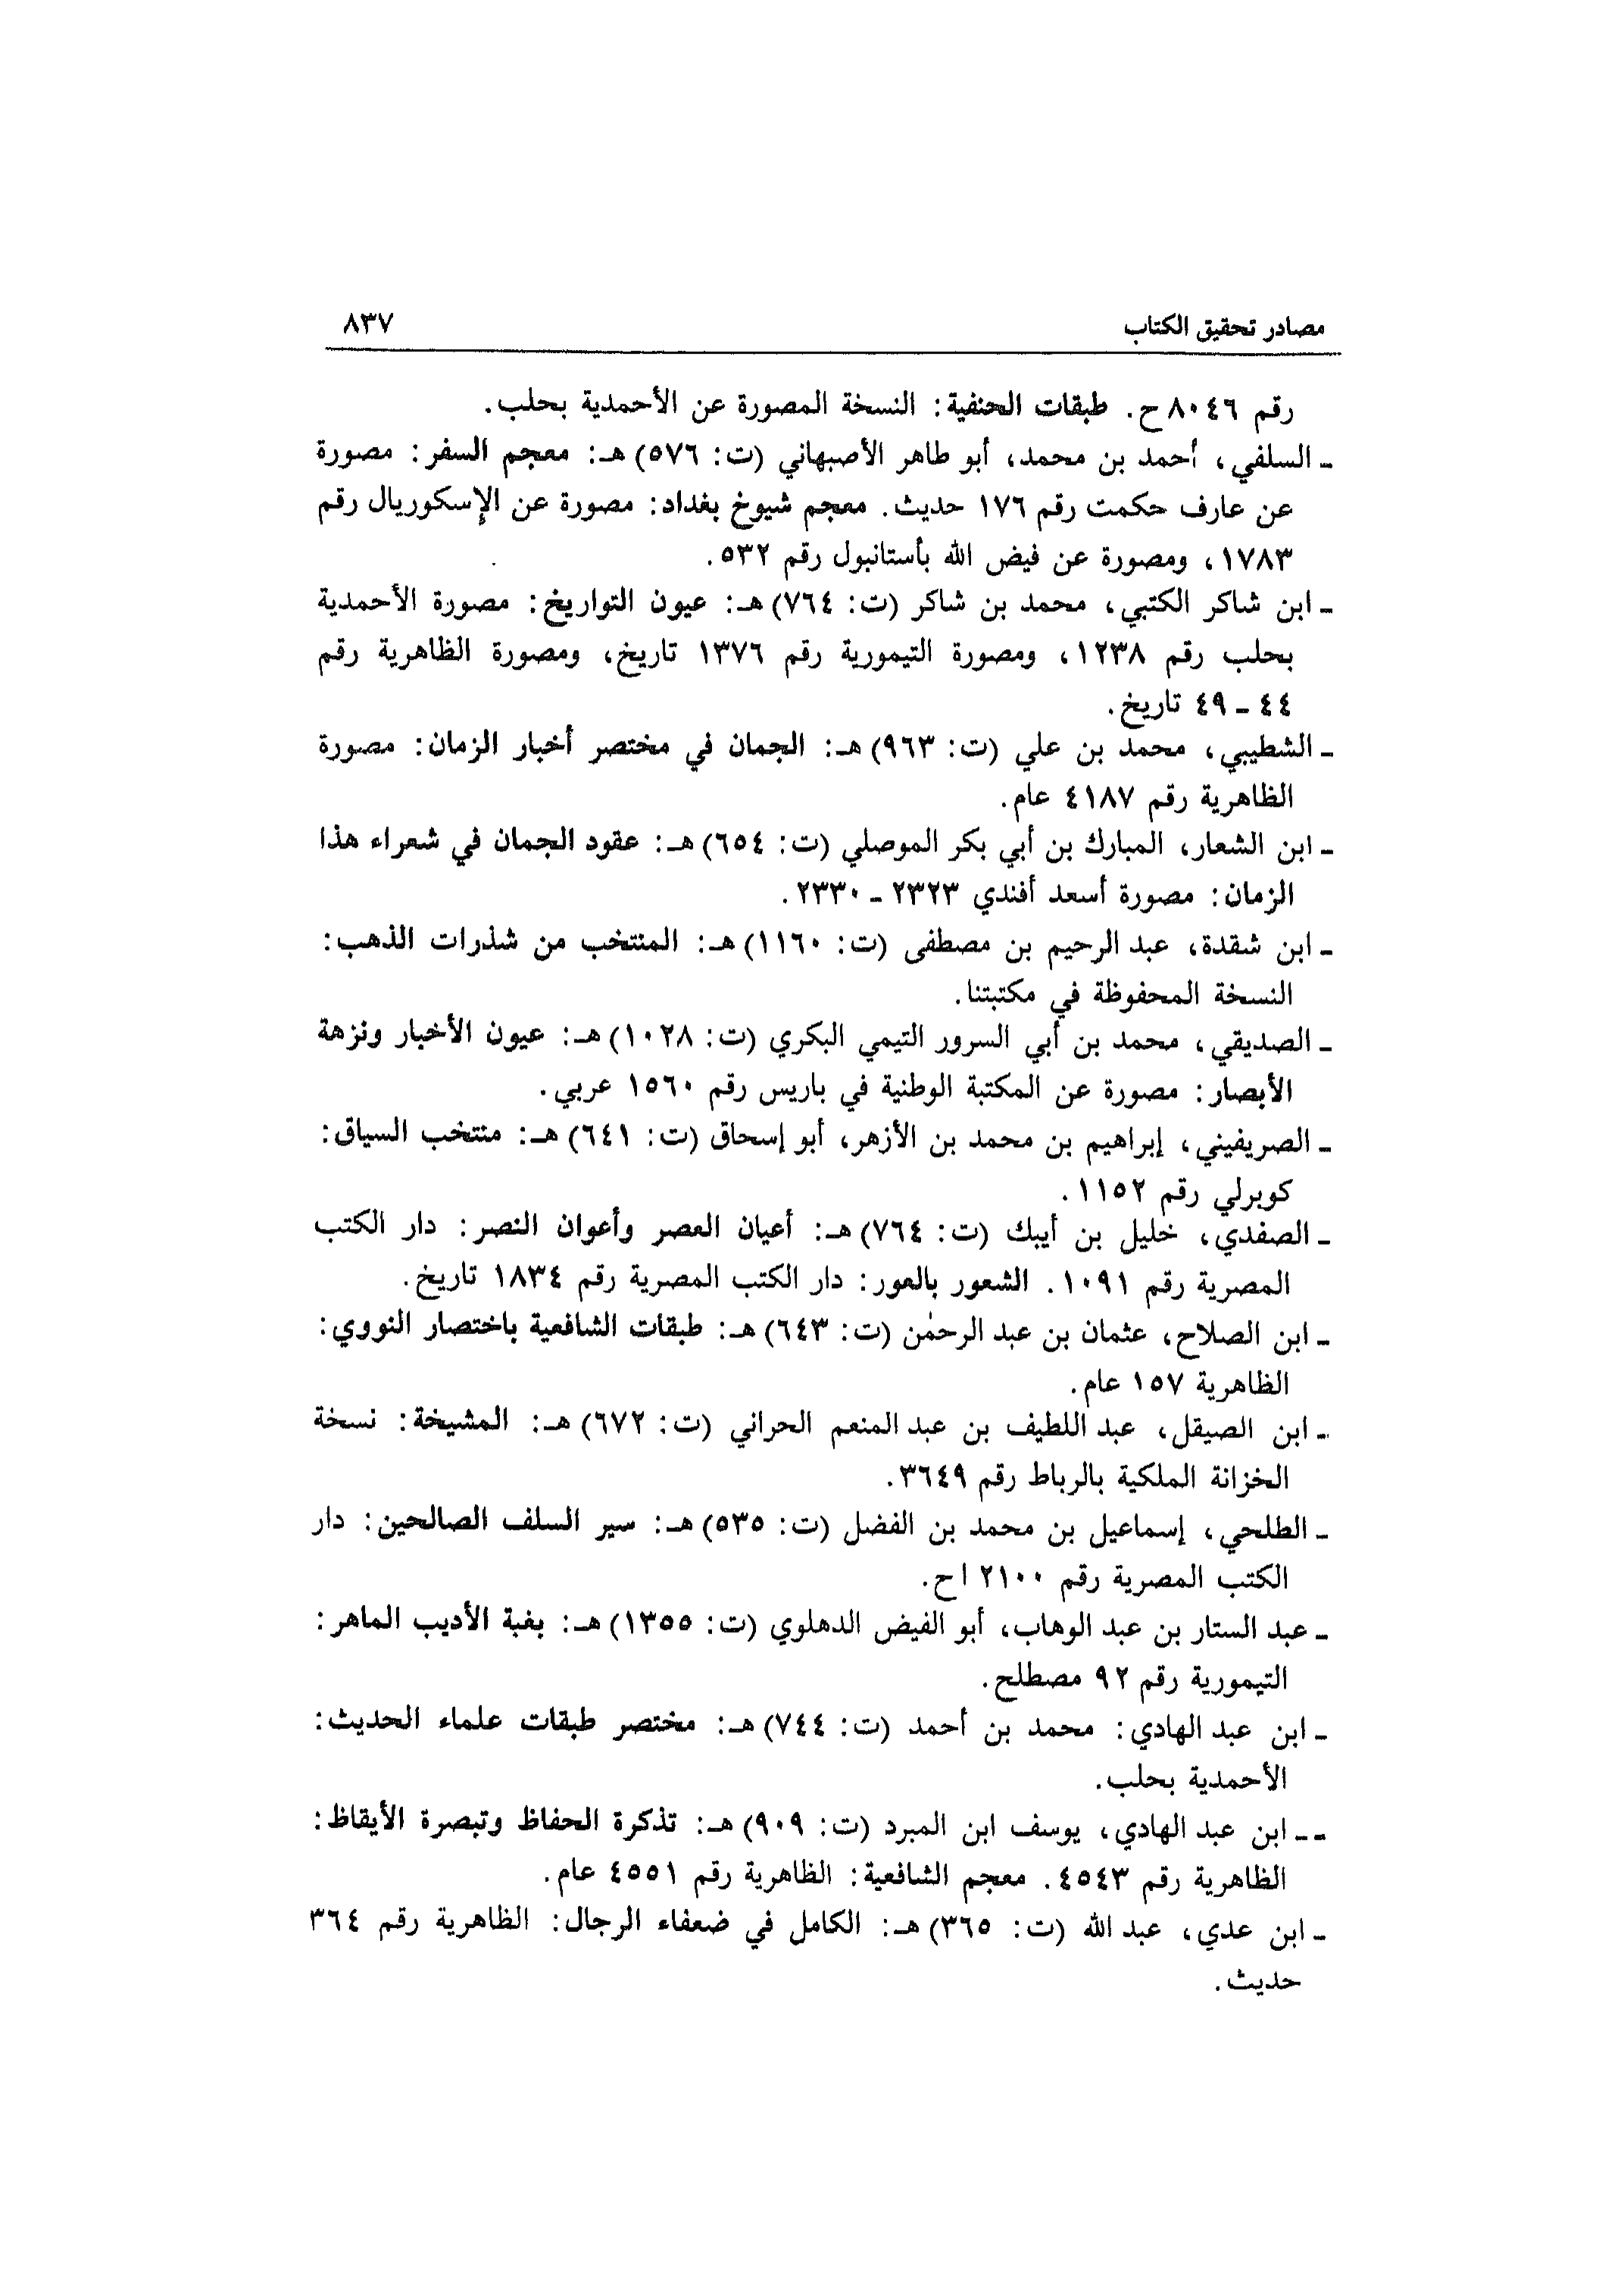 مصادر تحقيق الكتاب ٨٣٧
رقم ٨٠٤٦ ح. طبقات الحنفية: النسخة المصورة عن الأحمدية بحلب.
ـ السلفي، أحمد بن محمد، أبو طاهر الأصبهاني (ت: ٥٧٦) هـ: معجم السفر: مصورة
عن عارف حكمت رقم ١٧٦ حديث. معجم شيوخ بغداد: مصورة عن الإسكوريال رقم
١٧٨٣، ومصورة عن فيض الله بأستانبول رقم ٥٣٢.
ـ ابن شاكر الكتبي، محمد بن شاكر (ت: ٧٦٤) هـ: عيون التواريخ: مصورة الأحمدية
بحلب رقم ١٢٣٨، ومصورة التيمورية رقم ١٣٧٦ تاريخ، ومصورة الظاهرية رقم
٤٤ ـ ٤٩ تاريخ.
ـ الشطيبي، محمد بن علي (ت: ٩٦٣) هـ: الجمان في مختصر أخبار الزمان: مصورة
الظاهرية رقم ٤١٨٧ عام.
ـ ابن الشعار، المبارك بن أبي بكر الموصلي (ت: ٦٥٤) هـ: عقود الجمان في شعراء هذا
الزمان: مصورة أسعد أفندي ٢٣٢٣ ـ ٢٣٣٠.
ـ ابن شقدة، عبد الرحيم بن مصطفى (ت: ١١٦٠) هـ: المنتخب من شذرات الذهب:
النسخة المحفوظة في مكتبتنا.
ـ الصديقي، محمد بن أبي السرور التيمي البكري (ت: ١٠٢٨) هـ: عيون الأخبار ونزهة
الأبصار: مصورة عن المكتبة الوطنية في باريس رقم ١٥٦٠ عربي.
ـ الصريفيني، إبراهيم بن محمد بن الأزهر، أبو إسحاق (ت: ٦٤١) هـ: منتخب السياق:
كوبرلي رقم ١١٥٢.
ـ الصفدي، خليل بن أيبك (ت: ٧٦٤) هـ: أعيان العصر وأعوان النصر: دار الكتب
المصرية رقم ١٠٩١. الشعور بالعور: دار الكتب المصرية رقم ١٨٣٤ تاريخ.
ـ ابن الصلاح، عثمان بن عبد الرحمٰن (ت: ٦٤٣) هـ: طبقات الشافعية باختصار النووي:
الظاهرية ١٥٧ عام.
ـ ابن الصيقل، عبد اللطيف بن عبد المنعم الحراني (ت: ٦٧٢) هـ: المشيخة: نسخة
الخزانة الملكية بالرباط رقم ٣٦٤٩.
ـ الطلحي، إسماعيل بن محمد بن الفضل (ت: ٥٣٥) هـ: سير السلف الصالحين: دار
الكتب المصرية رقم ٢١٠٠ اح.
ـ عبد الستار بن عبد الوهاب، أبو الفيض الدهلوي (ت: ١٣٥٥) هـ: بغية الأديب الماهر:
التيمورية رقم ٩٢ مصطلح.
ـ ابن عبد الهادي: محمد بن أحمد (ت: ٧٤٤) هـ: مختصر طبقات علماء الحديث:
الأحمدية بحلب.
ـ ـ ابن عبد الهادي، يوسف ابن المبرد (ت: ٩٠٩) هـ: تذكرة الحفاظ وتبصرة الأيقاظ:
الظاهرية رقم ٤٥٤٣. معجم الشافعية: الظاهرية رقم ٤٥٥١ عام.
ـ ابن عدي، عبد الله (ت: ٣٦٥) هـ: الكامل في ضعفاء الرجال: الظاهرية رقم ٣٦٤
حديث.